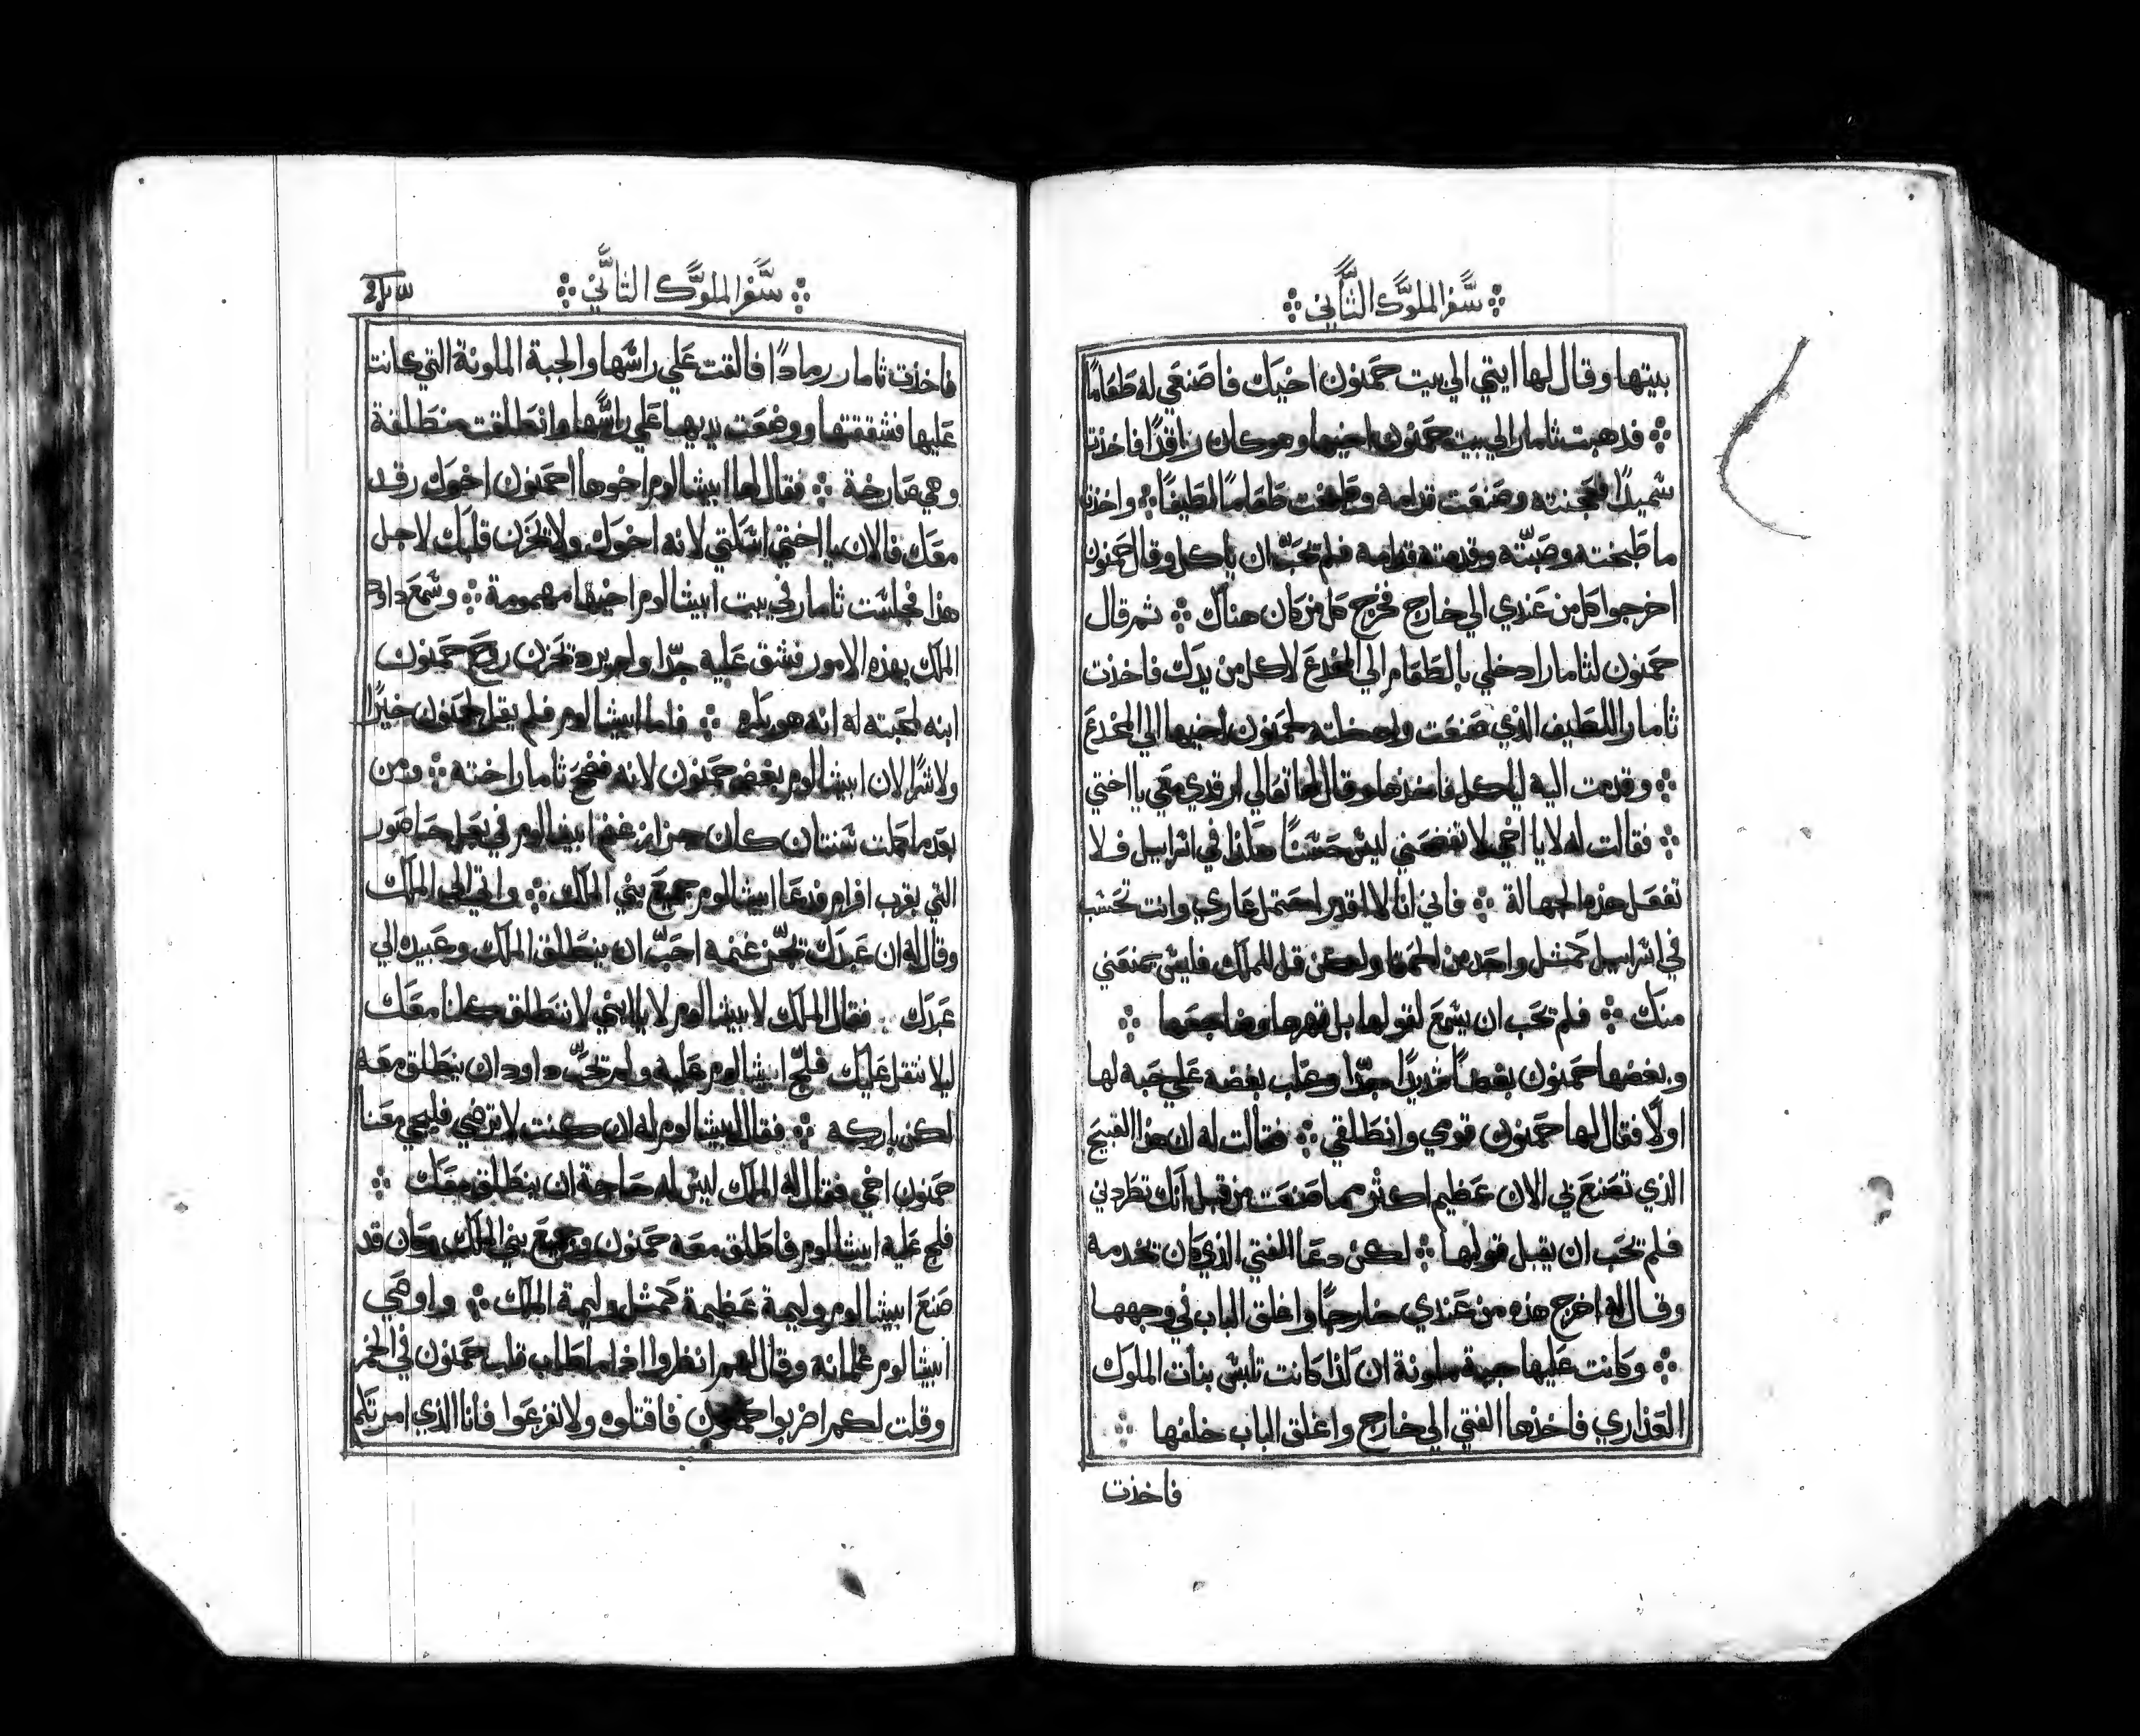 سفر الملوك الثاني
بيتها وقال لها ايتي الي بيت حمنون اخيك فاصنعي له طعامًا
فذهبت ثامار الي بيت حمنون اخيها وهو كان راقدًا فاخذت
سميدًا فعجنته وصنعت قدامه وطبخت طعامًا لطيفًا واخذت
ما طبخته وصبته وقدمته قدامه فلم تحب ان ياكل وقال حمنون
اخرجوا كل من عندي الي خارج فخرج كل من كان هناك ثم قال
حمنون لثامار ادخلي بالطعام الي المخدع لاكل من يدك فاخذت
ثامار اللطيف الذي صنعت وادخلته لحمنون اخيها الي المخدع
وقدمت اليه لياكل فاخذها وقال لها تعالي ارقدي معي يا اختي
فقالت له لا يا اخي لا تفضحني ليس حسنًا هكذا في اسراييل فلا
تفعل هذه الجهالة فاني انا لا اقدر احتمل عاري وانت تحسب
في اسراييل كمثل واحد من الحمقا ولكن قل للملك فليس يمنعني
منك فلم تحب ان يسمع لقولها بل قهرها وضاجعها
وبغضها حمنون بغضًا شديدًا جدًا وغلب بغضه علي حبه لها
اولًا فقال لها حمنون قومي وانطلقي فقالت له ان هذا القبيح
الذي تصنع بي الان عظيم اكثر مما صنعت من قبل انك تطردني
فلم تحب ان يقبل قولها لكن دعا الفتي الذي كان تخدمه
وقال له اخرج هذه من عندي خارجًا واغلق الباب في وجهها
وكانت عليها جبة ملونة ان كذا كانت تلبس بنات الملوك
العذاري فاخذها الفتي الي خارج واغلق الباب خلفها
فاخذت
سفر الملوك الثاني
فاخذت ثامار رمادًا فالقت علي راسها والجبة الملونة التي كانت
عليها فشققتها ووضعت يديها علي راسها وانطلقت منطلقة
وهي صارخة فقال لها ابيشالوم اخوها احمنون اخوك رقد
معك فالان يا اختي اسكتي لانه اخوك ولا تحزن قلبك لاجل
هذا فجلست ثامار في بيت ابيشالوم اخيها مهمومة وسمع داود
الملك بهذه الامور فشق عليه جدًا ولم يرد تحزن روح حمنون
ابنه لمحبته له انه هو بكره فاما ابيشالوم فلم يقل لحمنون خيرًا
ولا شرًا لان ابيشالوم بغض حمنون لانه فضح ثامار اخته ومن
بعد ما كملت سنتان كان جزاز غنم ابيشالوم في بعل حاصور
التي بقرب افرام فدعا ابيشالوم جميع بني الملك واتي الي الملك
وقال له ان عبدك تجز غنمه احب ان ينطلق الملك وعبيده الي
عبدك فقال الملك لابيشالوم لا يا ابني لا ننطلق كلنا معك
ليلا نثقل عليك فلج ابيشالوم عليه ولم تحب داود ان ينطلق معه
لكن باركه فقال ابيشالوم له ان كنت لا ترضي فليجي معنا
حمنون اخي فقال له الملك ليس له حاجة ان ينطلق معك
فلج عليه ابيشالوم فاطلق معه حمنون وجميع بني الملك وكان قد
صنع ابيشالوم وليمة عظيمة كمثل وليمة الملك واوصي
ابيشالوم غلمانه وقال لهم انظروا اذا ما طاب قلب حمنون في الخمر
وقلت لكم اضربوا حمنون فاقتلوه ولا تفزعوا فانا الذي امرتكم